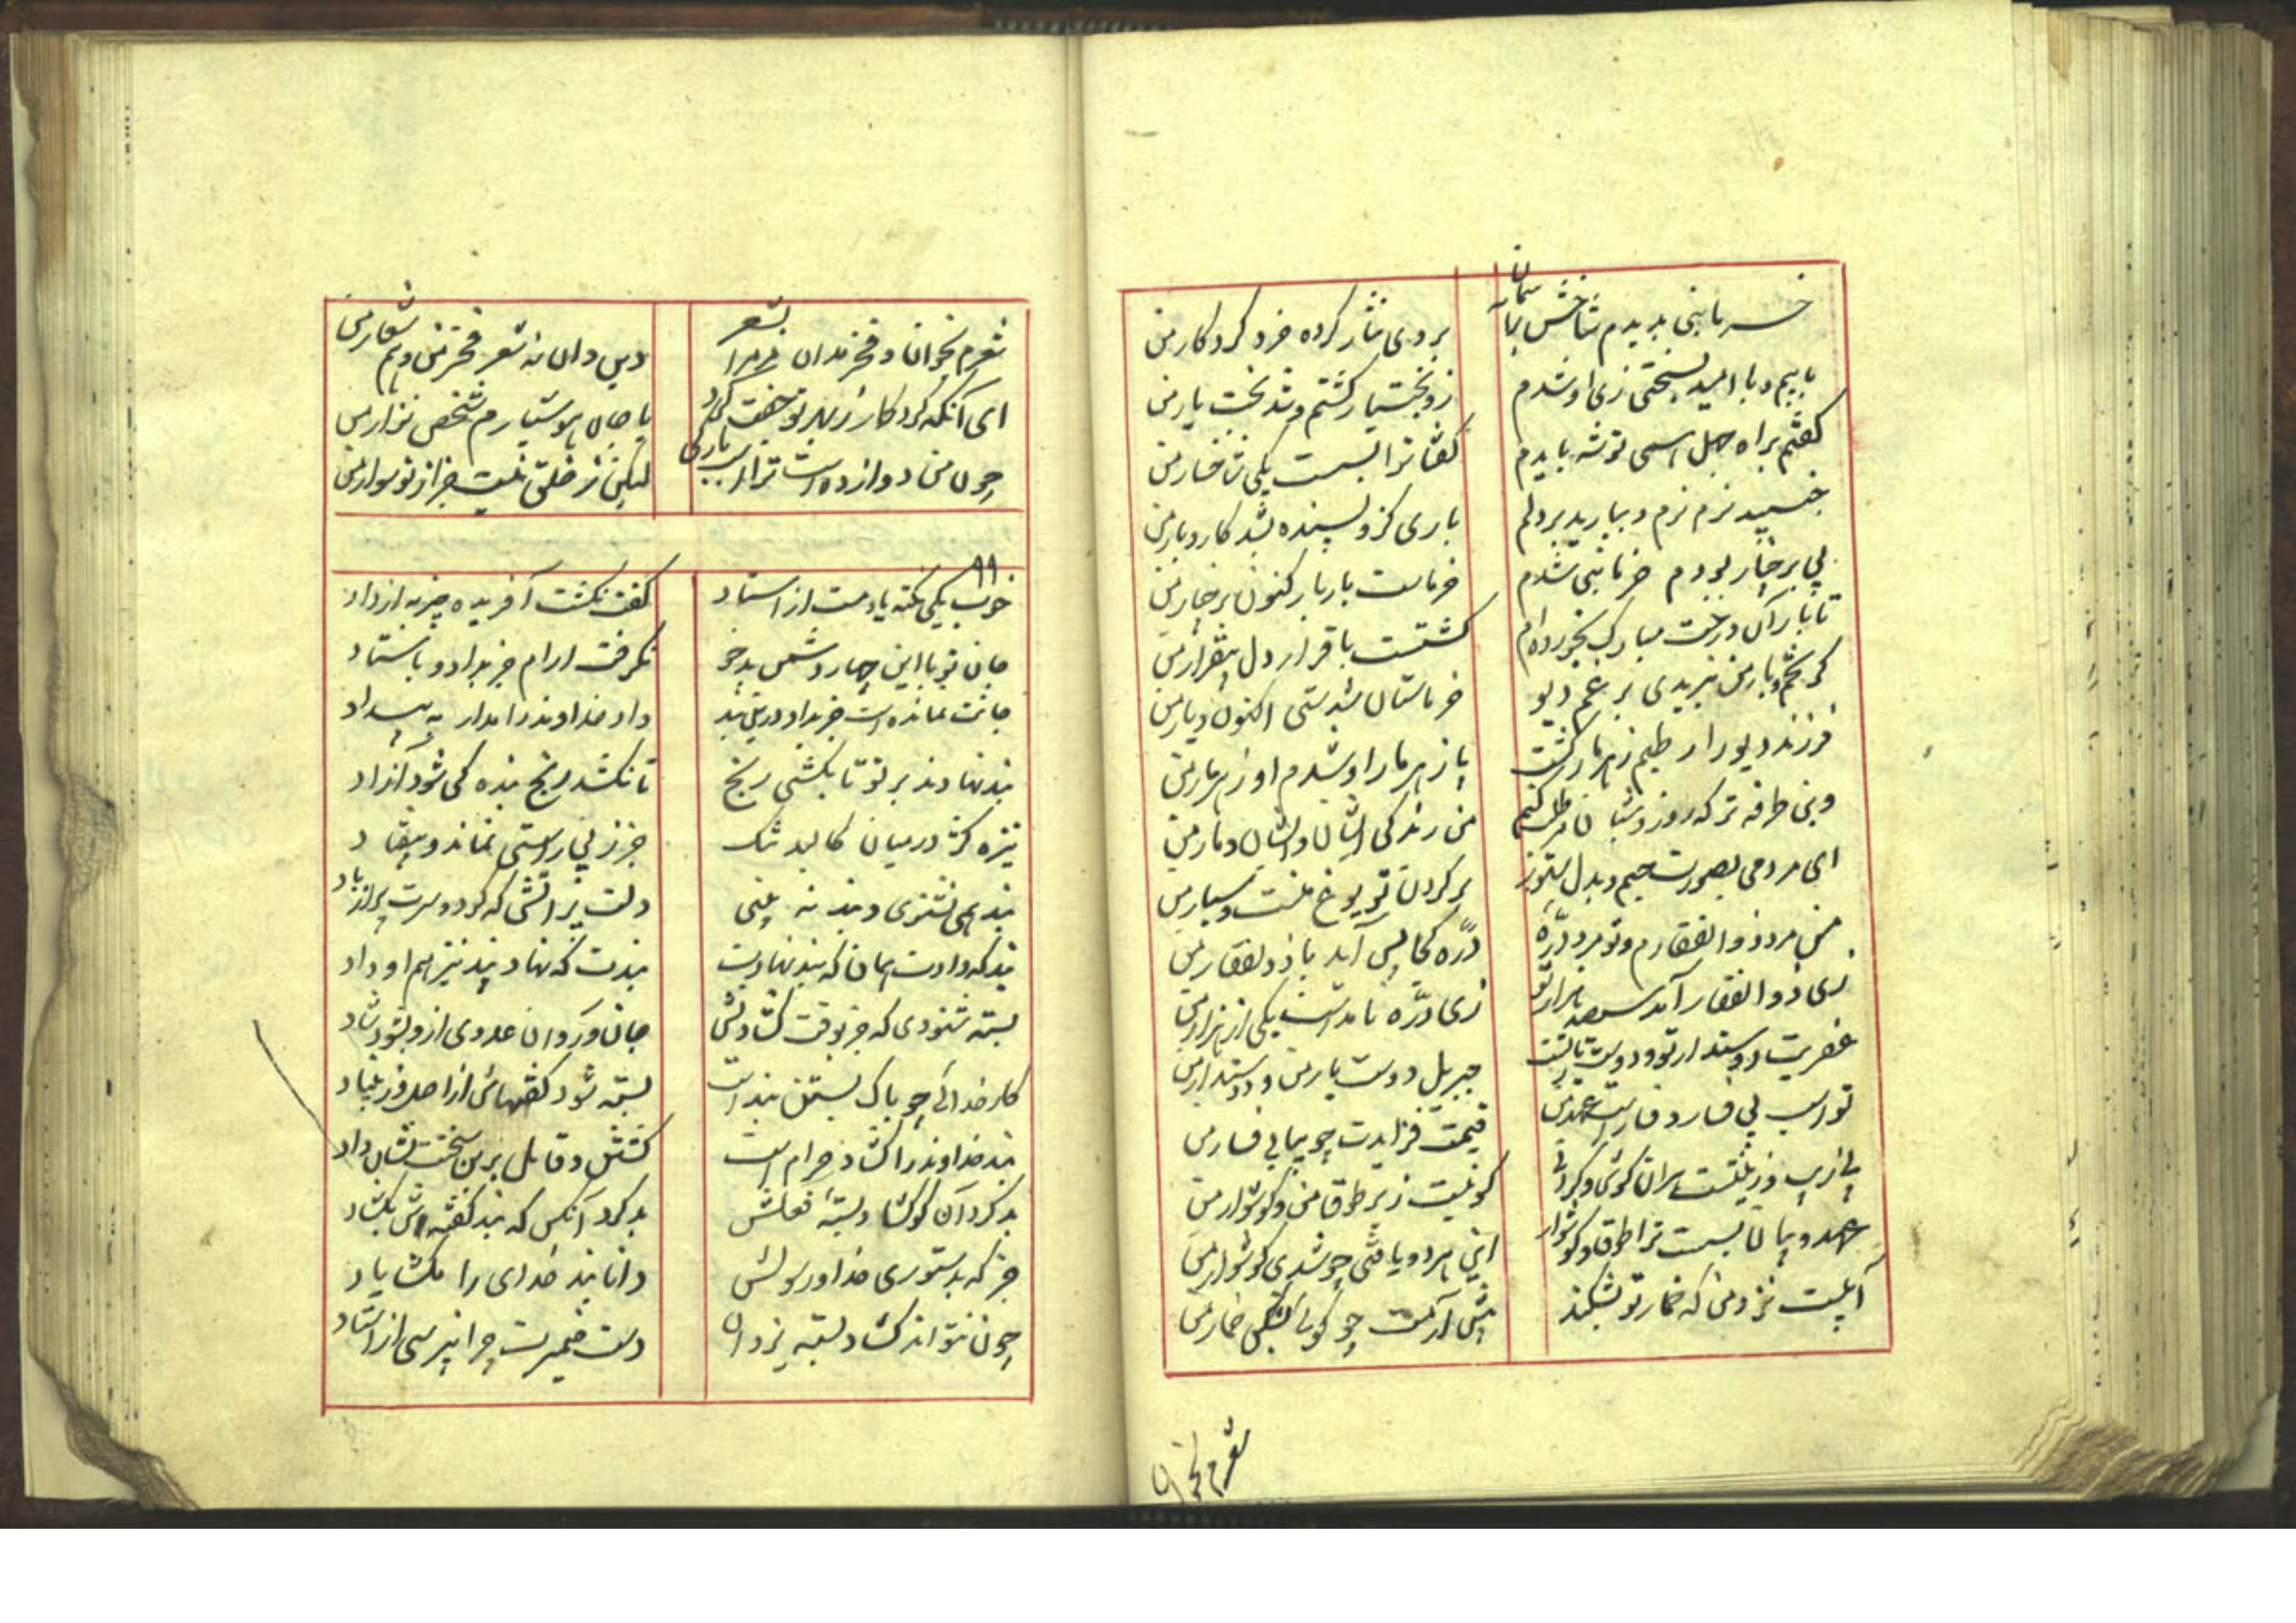 خرمابنی بدیدم شاخش بر آسمان
بروی نثار کرده خرد کردکار من
بابیم و با امید بسختی زی او شدم
زو بختیار کشتم و شد بخت یار من
کفتم براه جهل همی توشه بایدم
کفتا ترا بسست یکی شاخسار من
جنبید نرم نرم و ببارید بر دلم
باری کزو پسنده شد کار و بار من
بی بر چنار بودم خرمابنی شدم
خرماست بار بار کنون بر چنار من
تا بار آن درخت مبارک بخورده ام
کشتست باقرار دل بیقرار من
کر تخم و بار من نبریدی برغم دیو
خرماستان شدستی اکنون دیار من
فرزند دیو را رطبم زهرمار کشت
یا زهرمار او شدم او زهرمار من
وین طرفه تر که روز و شبان می طلب کنم
من زندکی ایشان و ایشان دمار من
ای مردمی بصورت جسم و بدل ستور
بر کردن تو یوغ منست و سپار من
من مرد ذوالفقارم و تو مرد درّه
درّه کجا بس آید با ذوالفقار من
زی ذوالفقار آمد سیصد هزار تو
زی درّه نامدست یکی از هزار من
عفریت دوستدار تو و دوست یار تست
جبریل دوست یار من و دوستدار من
تو اسب بی فسار و فسارست عهد من
قیمت فزایدت چو بیابی فسار من
بی زیب و زینتست سران کوش و کردنی
کو نیست زیر طوق من و کوشوار من
عهد و بیان بسست ترا طوق و کوشوار
این هر دو یافتی چو شدی کوشوار من
آبیست نزد من که خمار تو بشکند
پیش آرمت چو کویی بشکن خمار من
شعرم بخوان
شعرم بخوان و فخر مدان مر مرا بشعر
دین دان نه شعر فخر من و هم شعار من
ای آنکه کردکار زبهر تو جفت کرد
با جان هوشیارم شخص نزار من
چون من دوازده است ترا اسب بارکی
لیکن ز خلق نیست جز از تو سوار من
۹۹
خوب یکی نکته یادمست از استاد
کفت نکشت آفریده چیز به از داد
جان تو با این چهار دشمن بدخو
نکرفت ارام جز بداد و باستاد
جانت نمانده است جز بداد درین بند
داد خداوند را مدار به بیداد
بند نهادند بر تو تا بکشی رنج
تا نکشد رنج بنده کی شود آزاد
نیزه کژ در میان کالبد تنک
جز زپی راستی نماند و نیفتاد
بند همی نشنوی و بند نه بینی
دلت پر آتش که کرد و سرت پر از باد
پند که دادت همان که بند نهادت
بندت که نهاد پند نیز هم او داد
بسته شنودی که جز بوقت کشادنش
جان ورکان عدوی ازو بشود شاد
کار خدائی چو پاک بستن بند است
بسته شود کفتهاش از اصل و ز بنیاد
بند خداوند را کشاد حرام است
کشتن قابل برین سخنت نشان داد
بد کرد آن کو کشاد بسته فعلش
بد کرد آنکس که بند کفته اش بکشاد
جز که بدستوری خدا و رسولش
دانا بند خدای را مکشایاد
چون نتواند کشاد بسته یزدان
دست ضمیرت چرا نپرسی از استاد